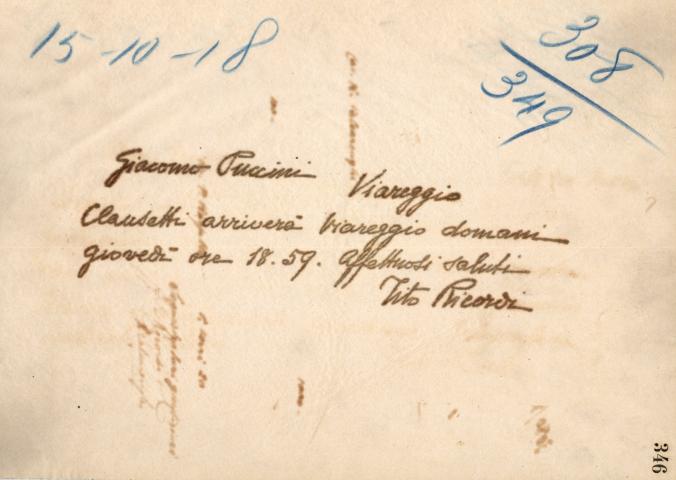 15-10-18
308
349
Giacomo Puccini Viareggio
Clausetti arriverà Viareggio domani
giovedì ore 18.59. Affettuosi saluti
Tito Ricordi
346